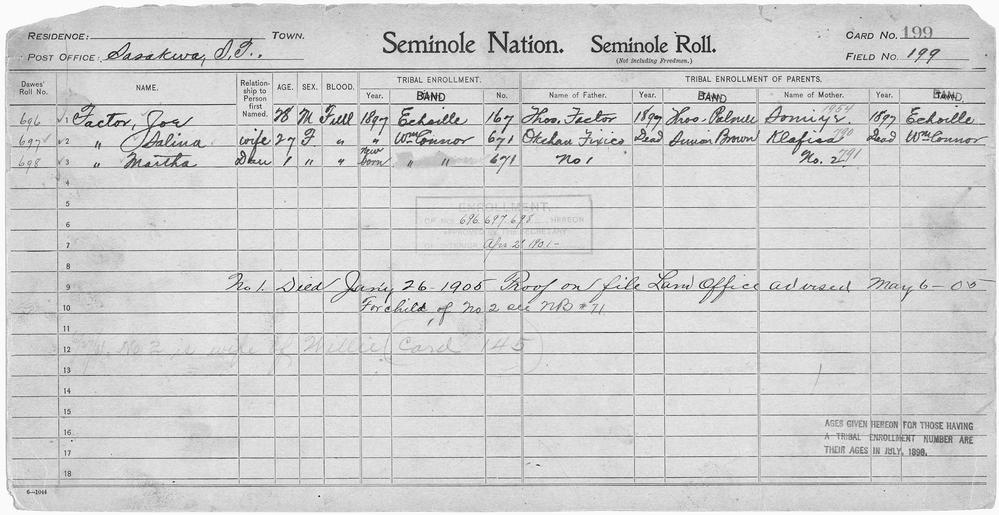 RESIDENCE: TOWN. Seminole Nation. Seminole Roll. CARD NO. 199
POST OFFICE: Sasakwa, I.T., (Not including Freedmen.) FIELD NO. 199
Dawes' Roll No. NAME. Relationship to Person first Named. AGE. SEX. BLOOD. TRIBAL ENROLLMENT. TRIBAL ENROLLMENT OF PARENTS.
Year. BAND No. Name of Father. Year. BAND Name of Mother. Year. BAND.
696 1 Factor, Joe 28 M Full 1897 Echoille 167 Thos. Factor 1897 Thos. Palmer 1954 1897 Echoille
697 2 " Salina wife 27 F " " Wm Connor 671 Okchan Fixico Dead Simon Brown Klafisa 790 Dead Wm Connor
698 3 " Martha Dau 1 " " New born " " 671 No 1 No. 2 791
4
5
ENROLLMENT
6 OF NOS. 696 697 698 HEREON
APPROVED BY THE SECRETARY
7 OF INTERIOR Apr 2 1901
8
9 No 1. Died Jany 26-1905 Proof on file Land Office advised May 6-05
10 For child of No 2 see NB #71
11
12 No 2 is wife of Willie Card 145
13
14
15
AGES GIVEN HEREON FOR THOSE HAVING
16 A TRIBAL ENROLLMENT NUMBER ARE
17 THEIR AGES IN JULY, 1898.
18
6-1044